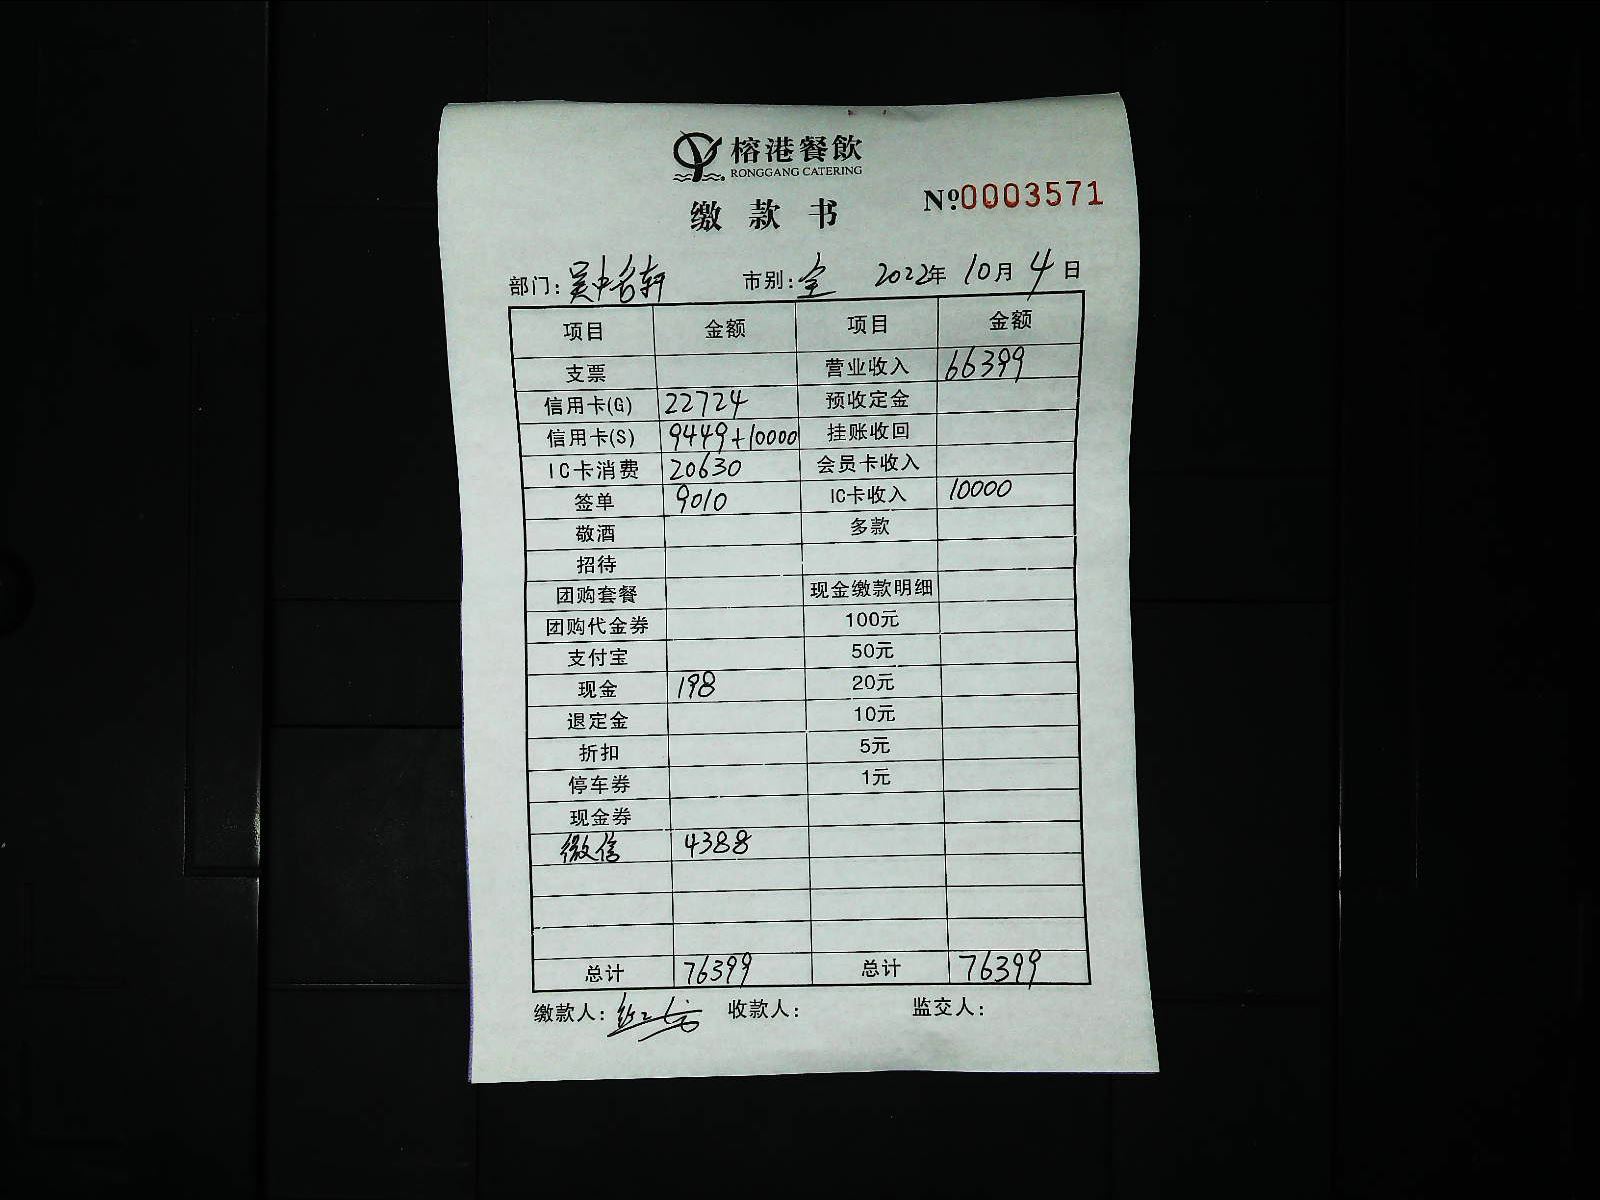 榕港餐飲
RONGGANG CATERING
缴款书 Nº0003571
部门：吴中名轩 市别：全 2022年10月4日
项目 金额 项目 金额
支票 营业收入 66399
信用卡(G) 22724 预收定金
信用卡(S) 9449+10000 挂账收回
IC卡消费 20630 会员卡收入
签单 9010 IC卡收入 10000
敬酒 多款
招待
团购套餐 现金缴款明细
团购代金券 100元
支付宝 50元
现金 198 20元
退定金 10元
折扣 5元
停车券 1元
现金券
微信 4388
总计 76399 总计 76399
缴款人： 收款人： 监交人：